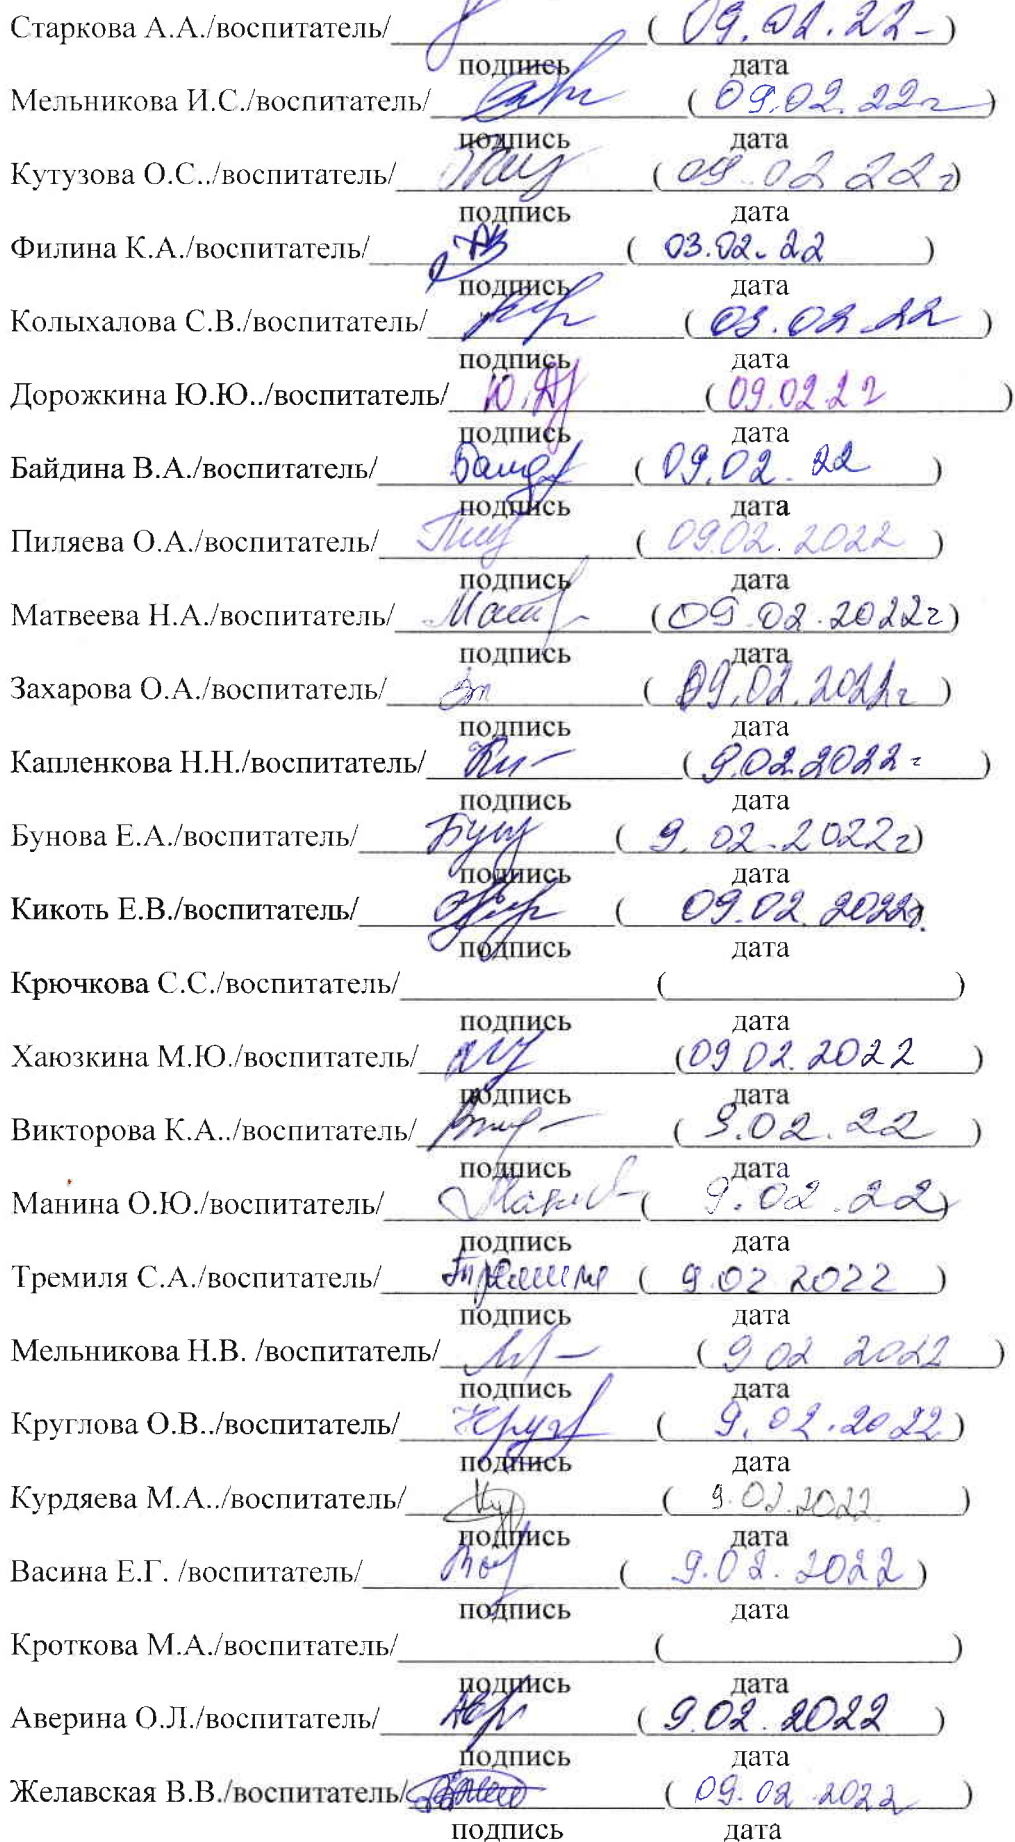 Старкова А.А./воспитатель/ ( 09.02.22 )
подпись дата
Мельникова И.С./воспитатель/ ( 09.02.22г )
подпись дата
Кутузова О.С../воспитатель/ ( 09.02 22г )
подпись дата
Филина К.А./воспитатель/ ( 03.02.22 )
подпись дата
Колыхалова С.В./воспитатель/ ( 03.02.22 )
подпись дата
Дорожкина Ю.Ю../воспитатель/ ( 09.02.22 )
подпись дата
Байдина В.А./воспитатель/ ( 09.02.22 )
подпись дата
Пиляева О.А./воспитатель/ ( 09.02.2022 )
подпись дата
Матвеева Н.А./воспитатель/ ( 09.02.2022г )
подпись дата
Захарова О.А./воспитатель/ ( 09.02.2022г )
подпись дата
Капленкова Н.Н./воспитатель/ ( 9.02.2022г )
подпись дата
Бунова Е.А./воспитатель/ ( 9.02.2022г )
подпись дата
Кикоть Е.В./воспитатель/ ( 09.02.2022г. )
подпись дата
Крючкова С.С./воспитатель/ ( )
подпись дата
Хаюзкина М.Ю./воспитатель/ ( 09.02.2022 )
подпись дата
Викторова К.А../воспитатель/ ( 9.02.22 )
подпись дата
Манина О.Ю./воспитатель/ ( 9.02.22 )
подпись дата
Тремиля С.А./воспитатель/ ( 9.02 2022 )
подпись дата
Мельникова Н.В. /воспитатель/ ( 9 02 2022 )
подпись дата
Круглова О.В../воспитатель/ ( 9.02.2022 )
подпись дата
Курдяева М.А../воспитатель/ ( 9.02.2022 )
подпись дата
Васина Е.Г. /воспитатель/ ( 9.02.2022 )
подпись дата
Кроткова М.А./воспитатель/ ( )
подпись дата
Аверина О.Л./воспитатель/ ( 9.02.2022 )
подпись дата
Желавская В.В./воспитатель/ ( 09.02.2022 )
подпись дата